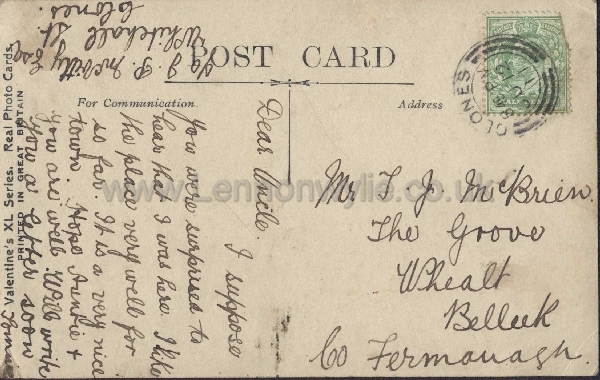 POST CARD
For Communication.
Address
Dear Uncle.
I suppose
You were surprised to
hear that I was here. I like
the place very well for
so far. It is a very nice
town. Hope Auntie &
you are well. Will write
you a letter soon
Clones.
Whitehall St
Esq
Mr. T. J. McBrien.
The Grove
Whealt
Belleek
Co Fermanagh.
CLONES
Valentine's XL Series. Real Photo Cards.
PRINTED IN GREAT BRITAIN
www.Lennonwylie.co.uk